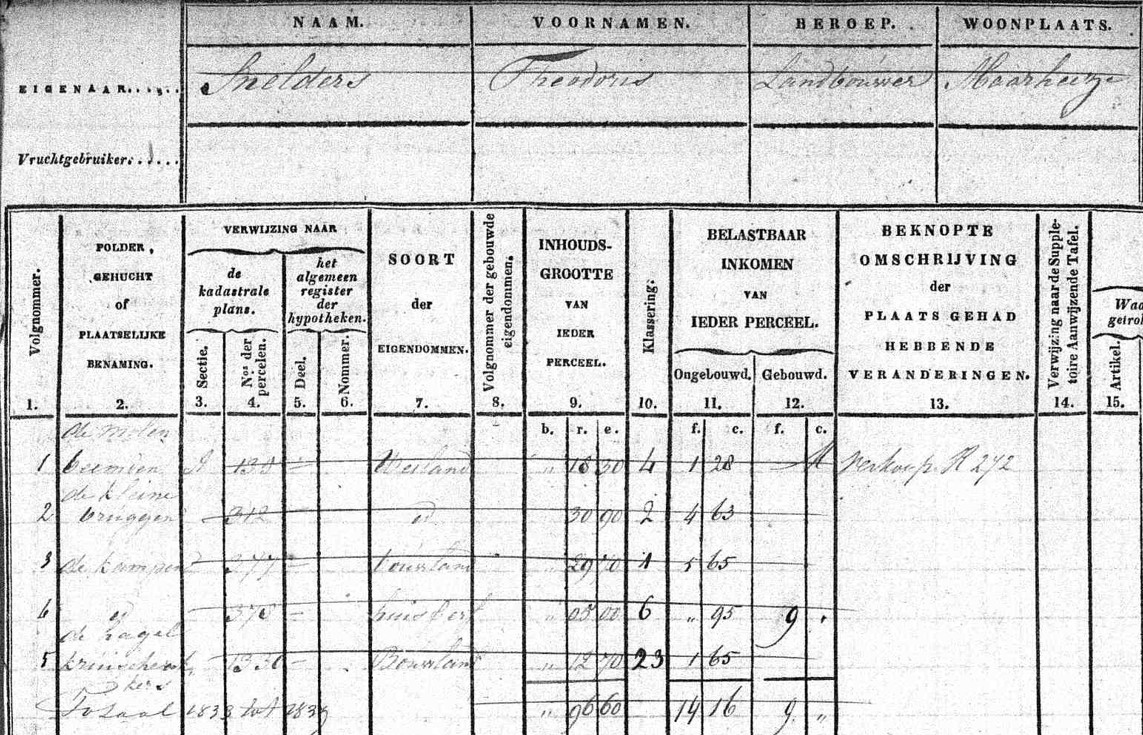 NAAM. VOORNAMEN. BEROEP. WOONPLAATS.
EIGENAAR..... Snelders Theodorus Landbouwer Maarheeze
Vruchtgebruiker......
Volgnommer. 1.
POLDER, GEHUCHT of PLAATSELIJKE BENAMING. 2.
VERWIJZING NAAR
de kadastrale plans.
Sectie. 3.
Nos der percelen. 4.
het algemeen register der hypotheken.
Deel. 5.
Nommer. 6.
SOORT der EIGENDOMMEN. 7.
Volgnommer der gebouwde eigendommen. 8.
INHOUDS-GROOTTE VAN IEDER PERCEEL. 9.
Klassering. 10.
BELASTBAAR INKOMEN VAN IEDER PERCEEL.
Ongebouwd. 11.
Gebouwd. 12.
BEKNOPTE OMSCHRIJVING der PLAATS GEHAD HEBBENDE VERANDERINGEN. 13.
Verwijzing naar de Supple-toire Aanwijzende Tafel. 14.
Artikel. 15.
b. r. e. f. c. f. c.
de molen
1 beemden 130 Weiland " 18 30 4 1 28 verkoop R 272
de kleine
2 bruggen 312 id 30 90 2 4 63
3 de kampen 277 bouwland 29 70 1 5 65
4 id 378 huis & erf " 05 00 6 " 95 9 "
de hagel
5 1330 Bouwland " 12 70 23 1 65
kers
Totaal 1833 tot 1839 " 96 60 14 16 9 "